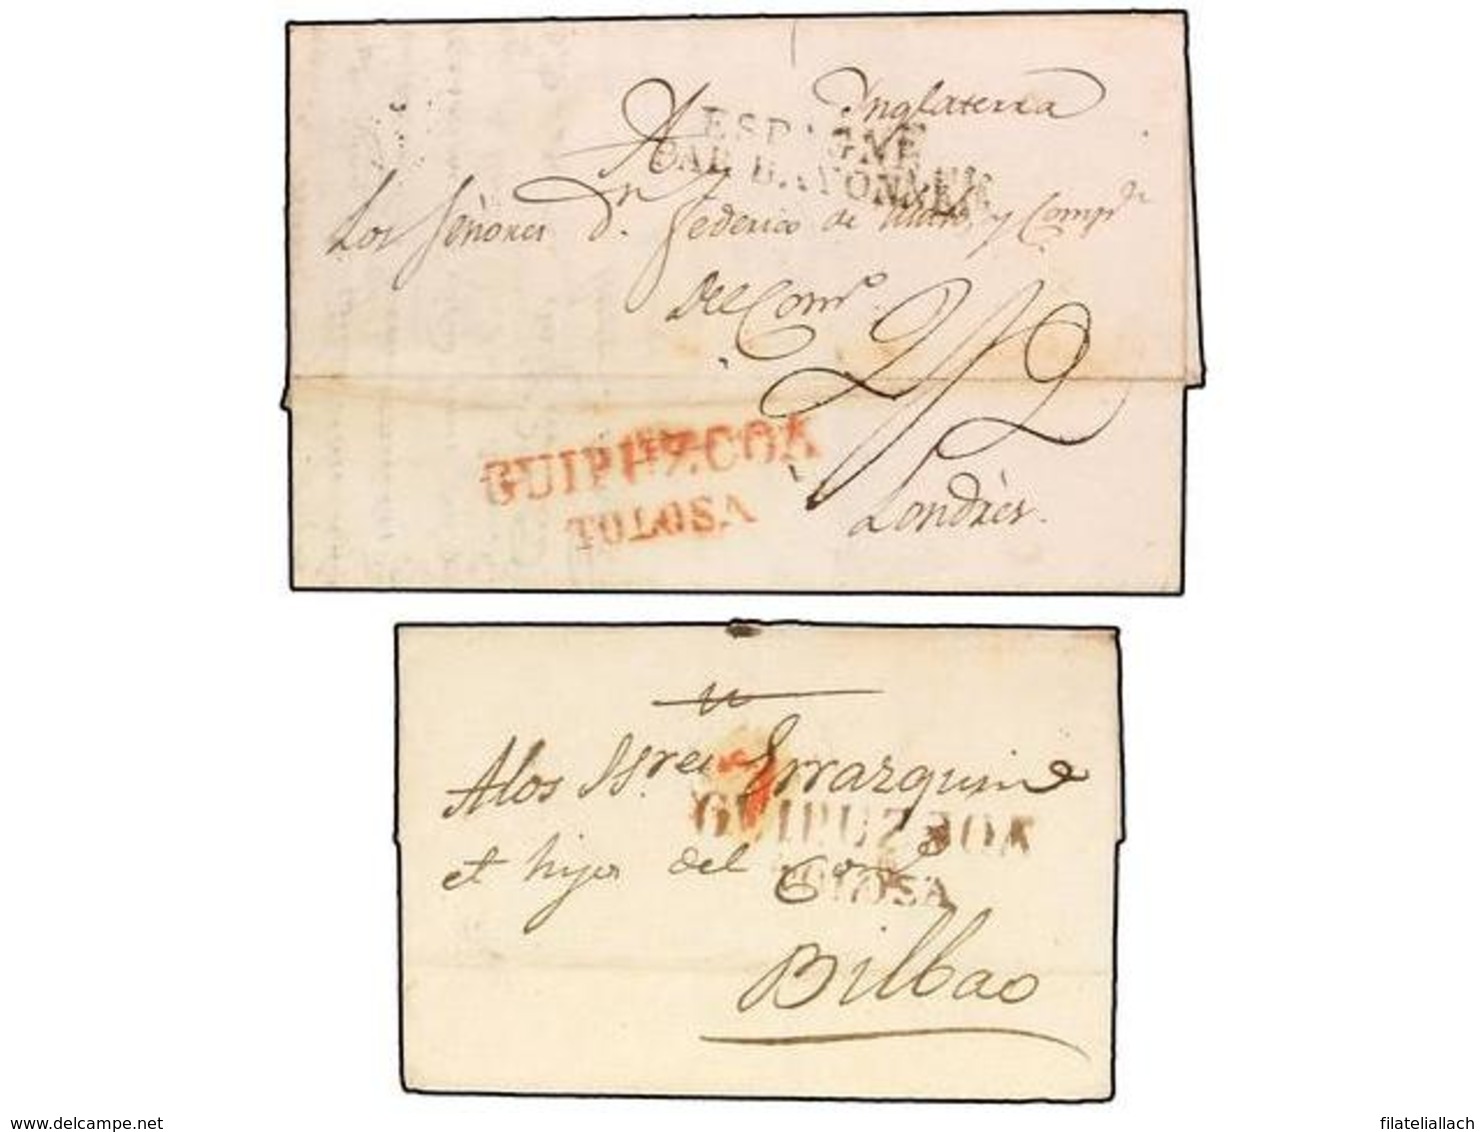 Inglaterra
A
ESPAGNE
PAR BAYONNE
Los Señores Dn. Federico de y Compa
Del Como.
2/2
GUIPUZCOA
TOLOSA
Londres.
Alos Ssres Errazquin
GUIPUZCOA
et hijos del Co
TOLOSA
Bilbao
www.delcampe.net
filateliallach